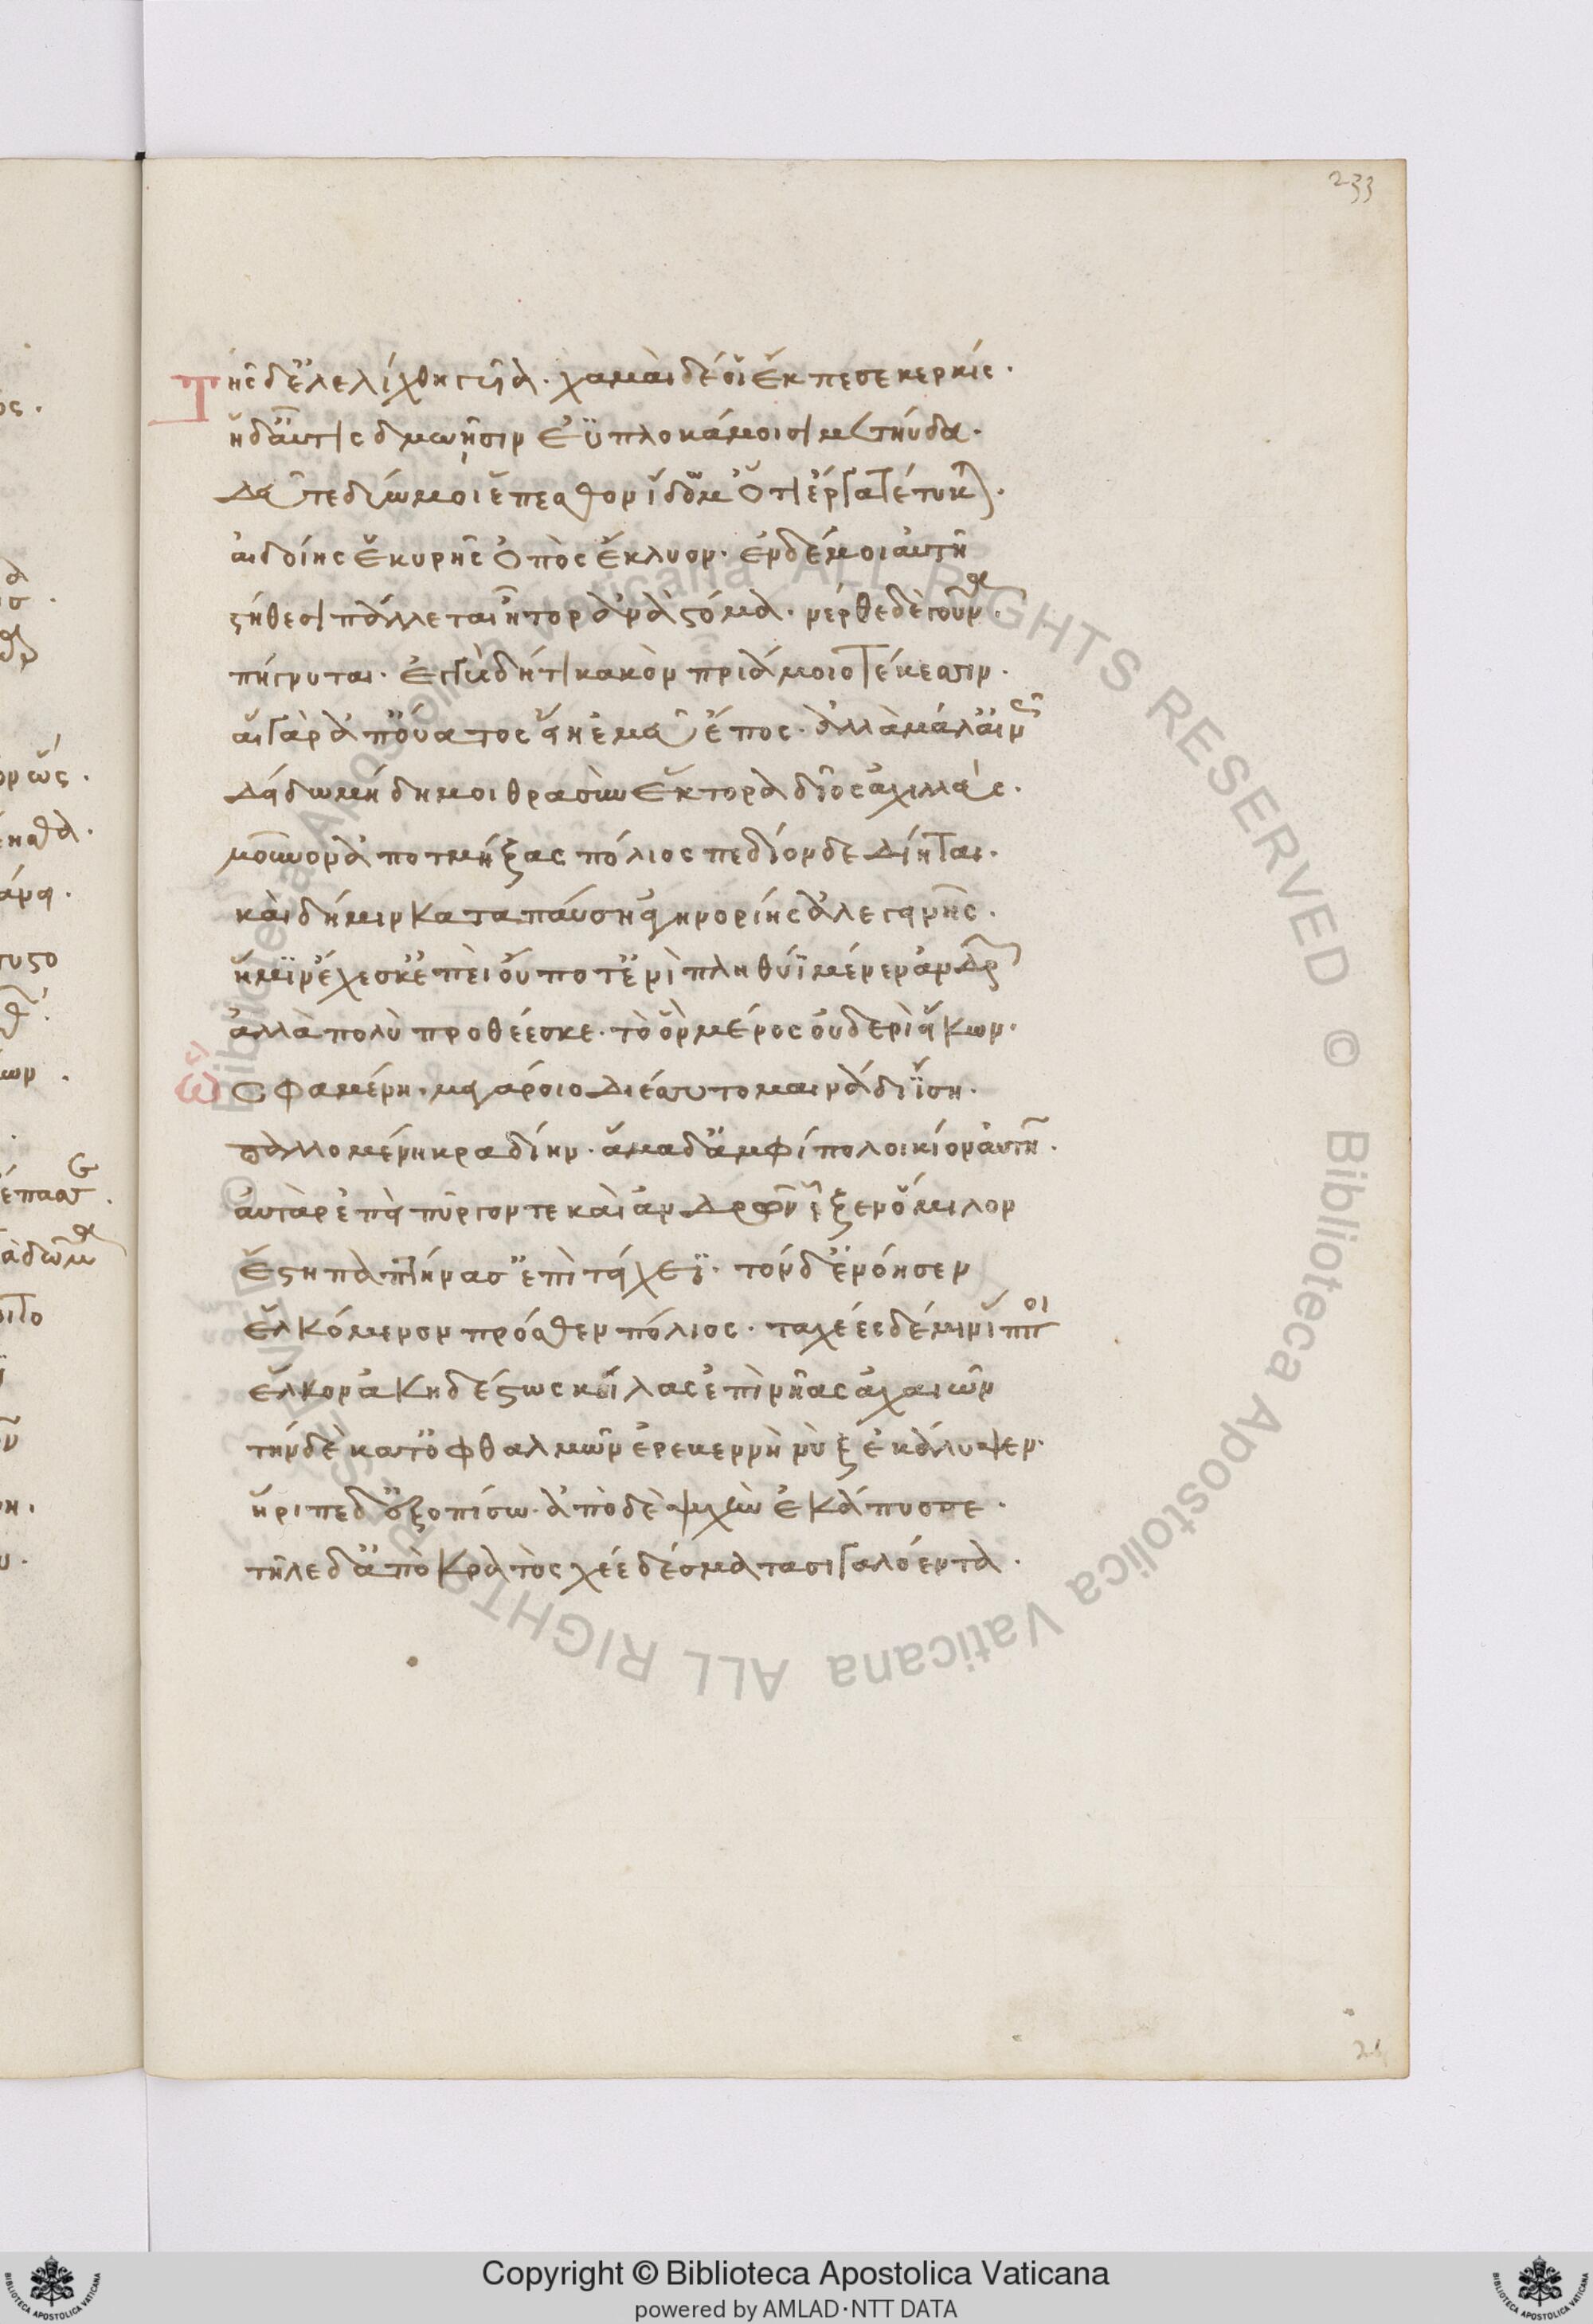 233
Τῆς δ' ἐλελίχθη γυῖα. χαμαὶ δέ οἱ ἔκπεσε κερκίς.
ἡ δ' αὖτις δμωῇσιν ἐϋπλοκάμοισι μετηύδα.
δεῦτε δύω μοι ἕπεσθον ἴδωμ' ὅτιν' ἔργα τέτυκται.
αἰδοίης ἑκυρῆς ὀπὸς ἔκλυον. ἐν δέ μοι αὐτῇ
στήθεσι πάλλεται ἦτορ ἀνὰ στόμα. νέρθε δὲ γοῦνα
πήγνυται. ἐγγὺς δή τι κακὸν πριάμοιο τέκεσσιν.
αἲ γὰρ ἀπ' οὔατος εἴη ἐμεῦ ἔπος. ἀλλὰ μάλ' αἰνῶς
δείδω μὴ δή μοι θρασὺν ἕκτορα δῖος ἀχιλλεύς.
μοῦνον ἀποτμήξας πόλιος πεδίονδε δίηται.
καὶ δή μιν καταπαύσῃ ἀγηνορίης ἀλεγεινῆς.
ἥ μιν ἔχεσκ' ἐπεὶ οὔποτ' ἐνὶ πληθύϊ μένεν ἀνδρῶν
ἀλλὰ πολὺ προθέεσκε. τὸ ὃν μένος οὐδενὶ εἴκων.
Ὣς φαμένη. μεγάροιο διέσσυτο μαινάδι ἴση.
παλλομένη κραδίην. ἅμα δ' ἀμφίπολοι κίον αὐτῇ.
αὐτὰρ ἐπεὶ πύργόν τε καὶ ἀνδρῶν ἷξεν ὅμιλον
ἔστη παπτήνασ' ἐπὶ τείχεϊ. τὸν δ' ἐνόησεν
ἑλκόμενον πρόσθεν πόλιος. ταχέες δέ μιν ἵπποι
ἕλκον ἀκηδέστως κοίλας ἐπὶ νῆας ἀχαιῶν
τὴν δὲ κατ' ὀφθαλμῶν ἐρεβεννὴ νὺξ ἐκάλυψεν.
ἤριπε δ' ἐξοπίσω. ἀπὸ δὲ ψυχὴν ἐκάπυσσε.
τῆλε δ' ἀπὸ κρατὸς χέε δέσματα σιγαλόεντα.
© Biblioteca Apostolica Vaticana ALL RIGHTS RESERVED © Biblioteca Apostolica Vaticana ALL RIGHTS RESERVED
Copyright © Biblioteca Apostolica Vaticana
powered by AMLAD·NTT DATA